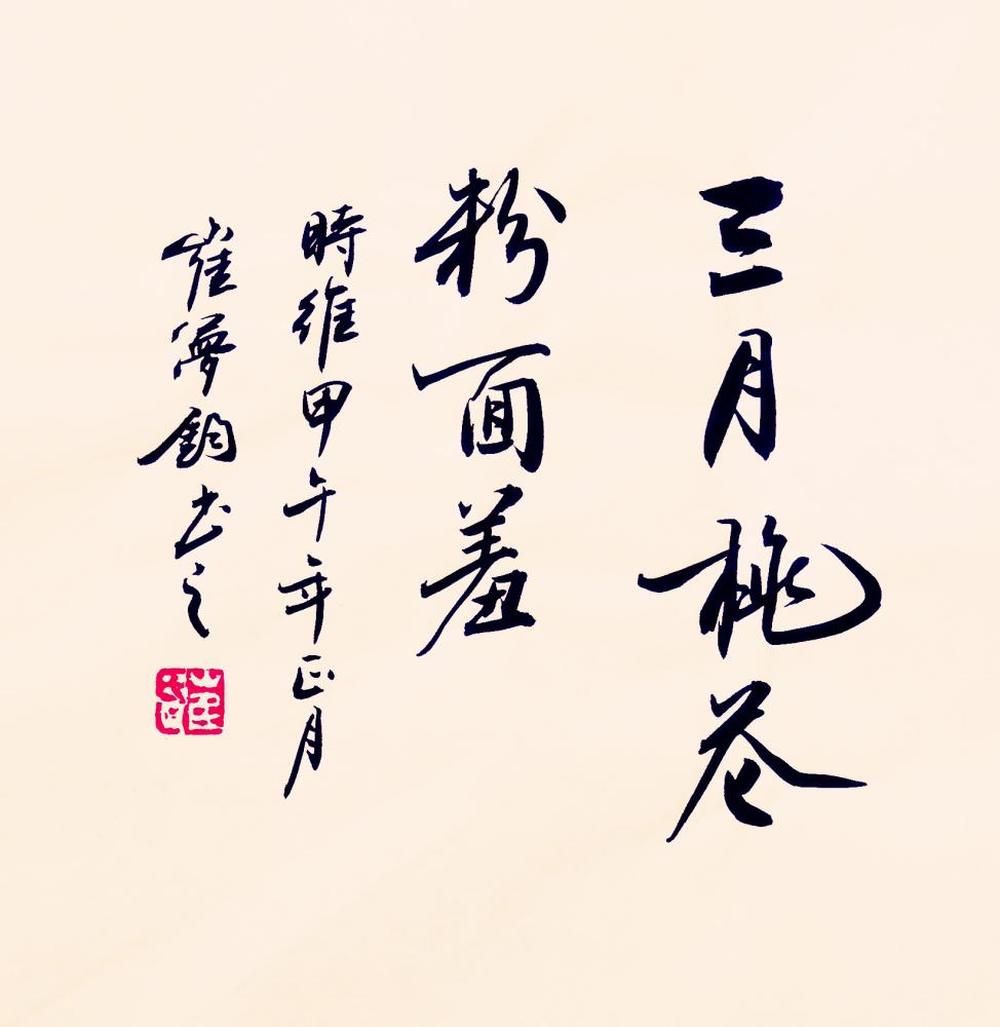 三月桃花
粉面羞
時維甲午年正月
崔夢鈞书之